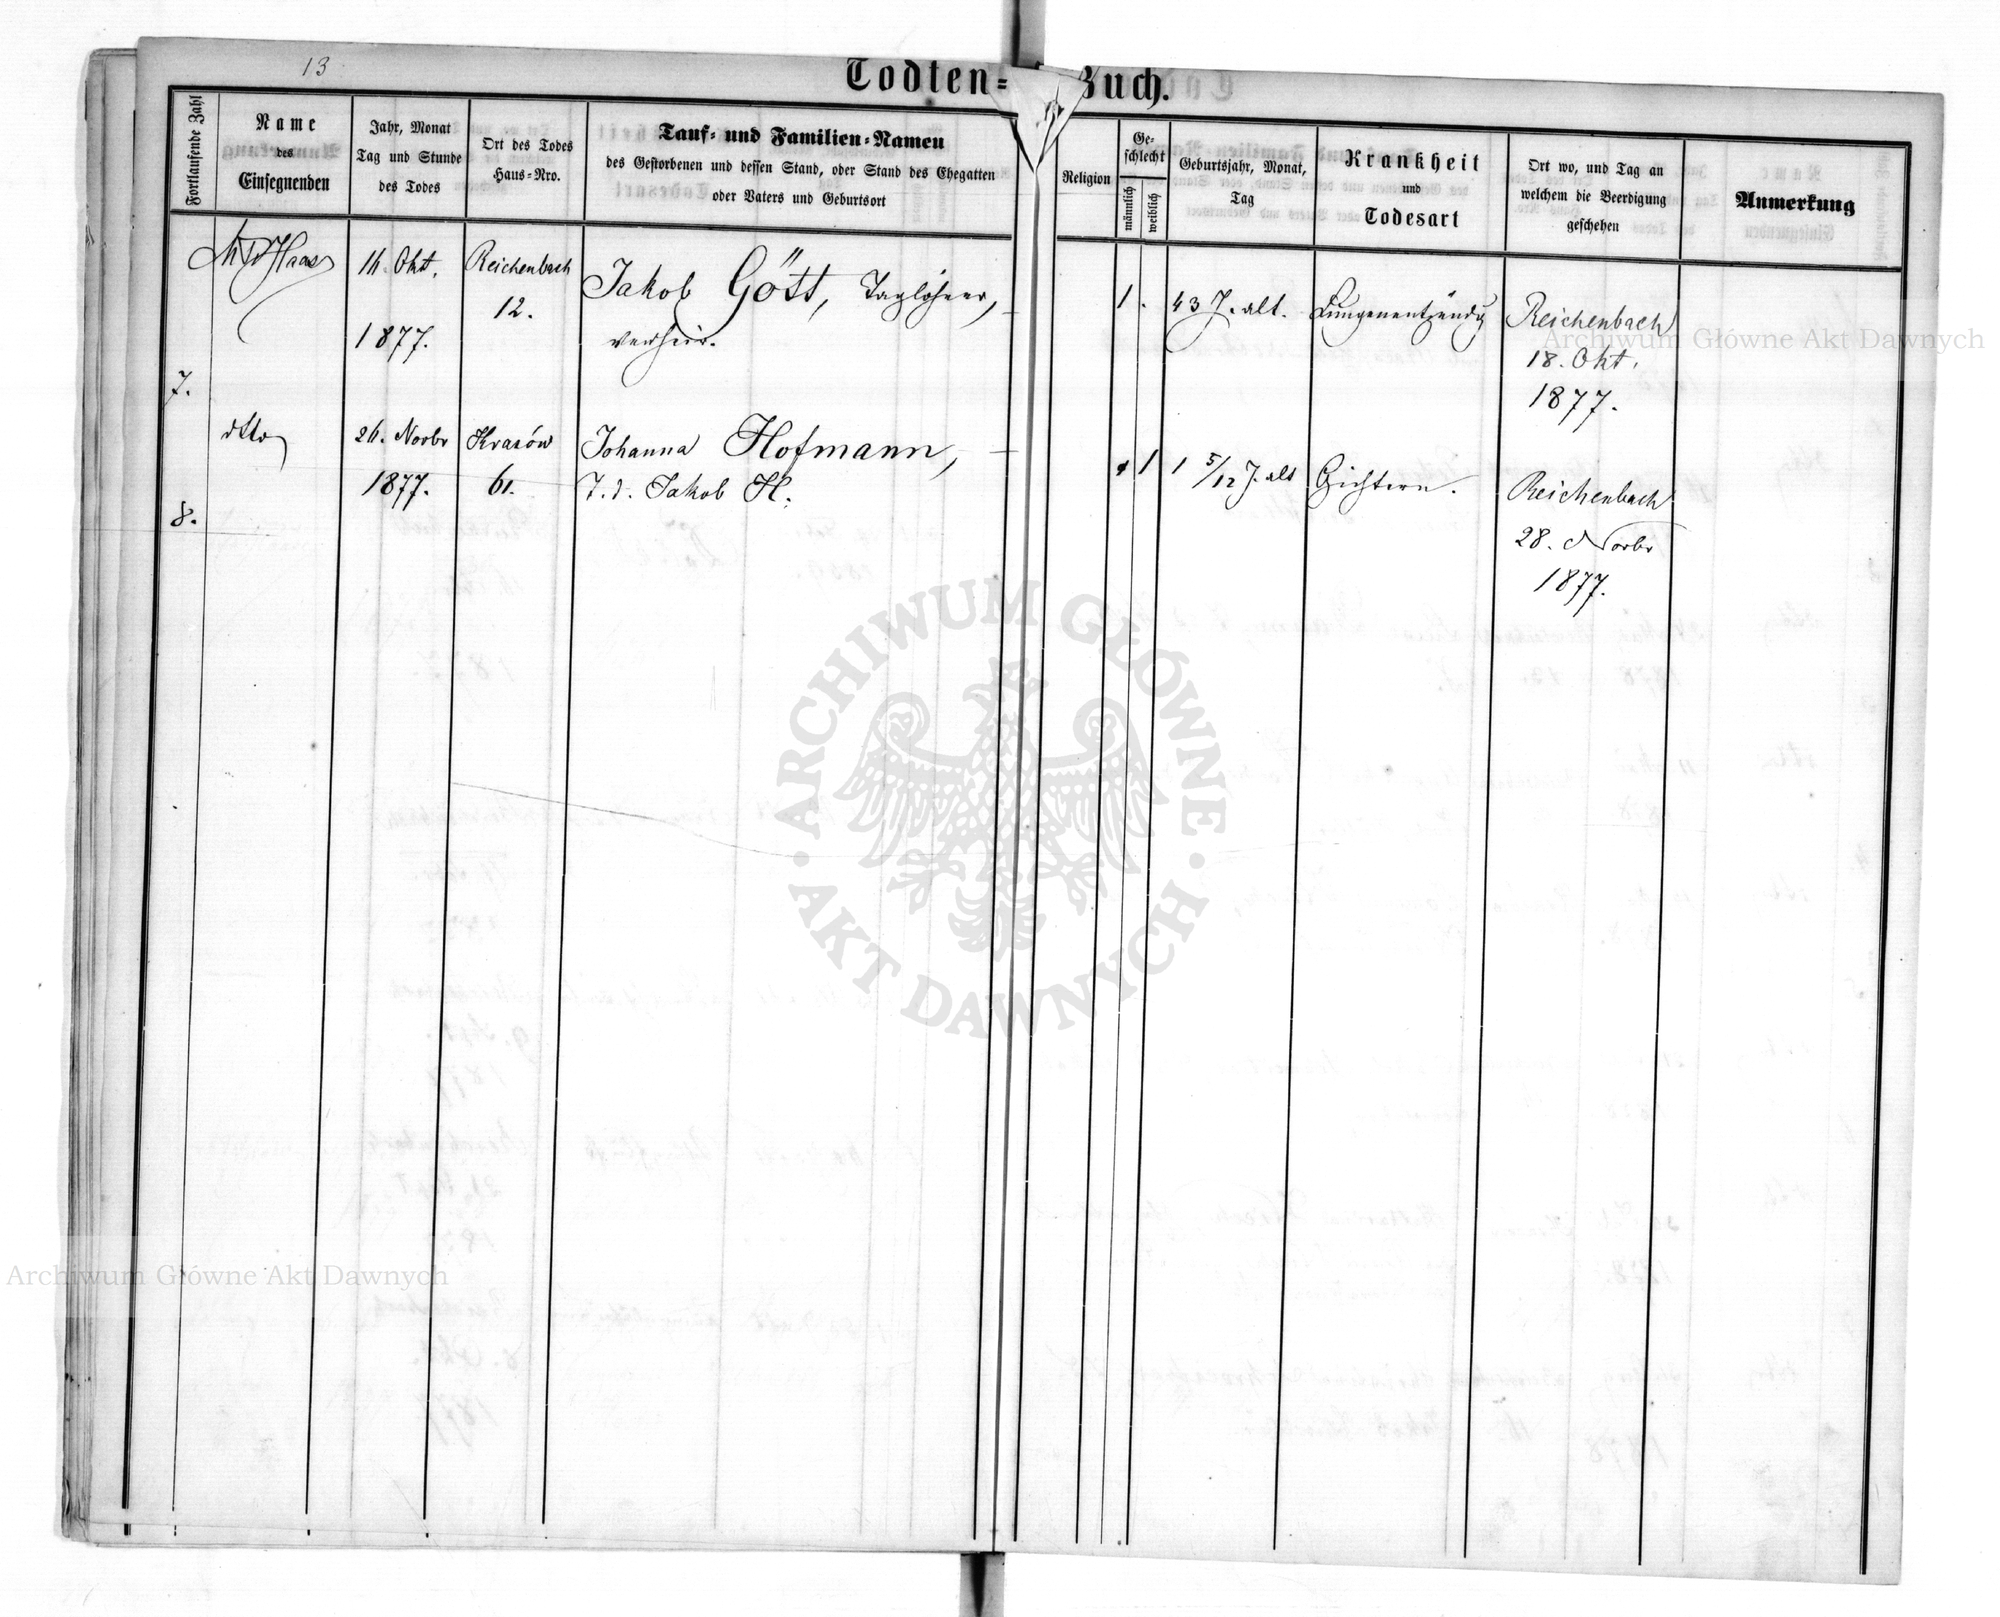 13
Todten-Buch.
Fortlaufende Zahl
Name
des
Einsegnenden
Jahr, Monat
Tag und Stunde
des Todes
Ort des Todes
Haus-Nro.
Tauf- und Familien-Namen
des Gestorbenen und dessen Stand, oder Stand des Ehegatten
oder Vaters und Geburtsort
Religion
Ge-
schlecht
männlich
weiblich
Geburtsjahr, Monat,
Tag
Krankheit
und
Todesart
Ort wo, und Tag an
welchem die Beerdigung
geschehen
Anmerkung
7.
Haas
16. Okt.
1877.
Reichenbach
12.
Jakob Gött, Taglöhner,
verheir.
1.
43 J. alt.
Lungenentzündg
Reichenbach
18. Okt.
1877.
8.
dtto
26. Novbr
1877.
Krasów
61.
Johanna Hofmann,
T. d. Jakob H.
1
1 5/12 J. alt
Gichtern.
Reichenbach
28. Novbr
1877.
Archiwum Główne Akt Dawnych
ARCHIWUM GŁÓWNE
AKT DAWNYCH
Archiwum Główne Akt Dawnych